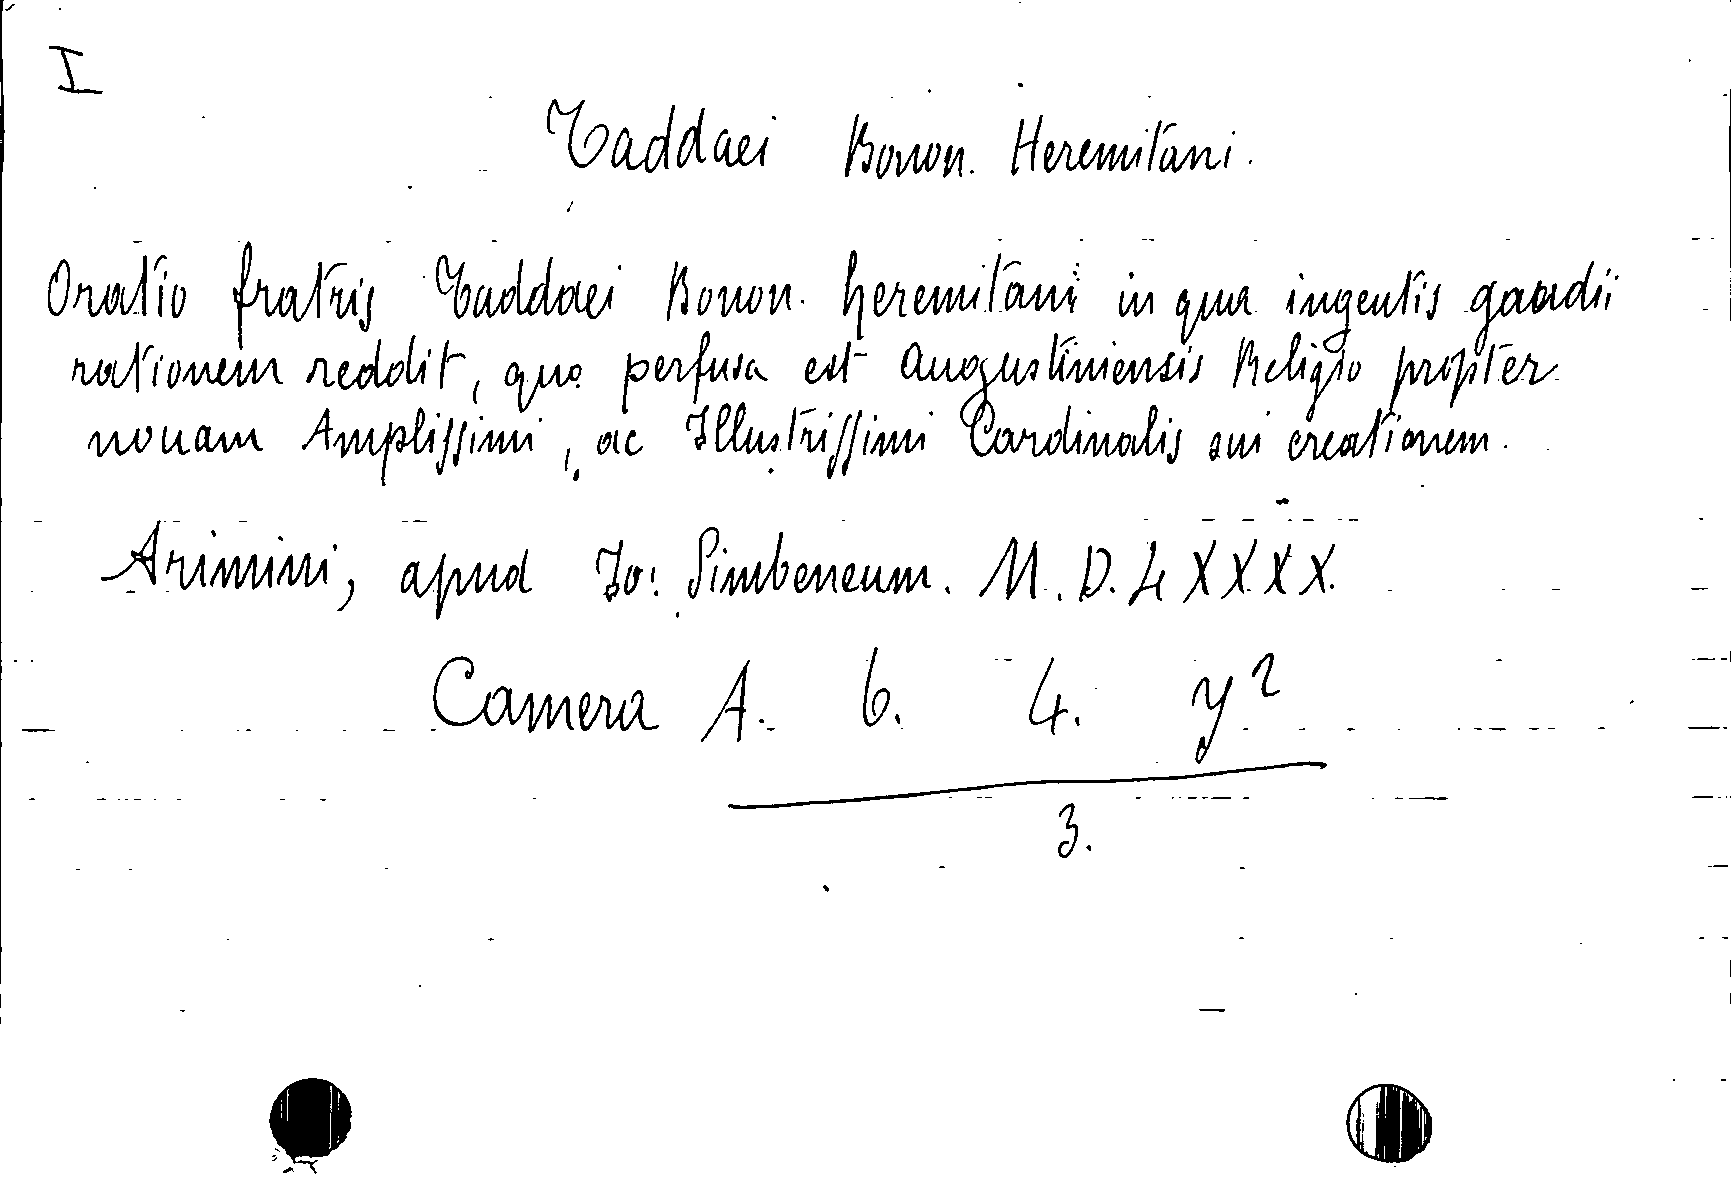 I
Taddaei Bonon. Heremitani.
Oratio fratris Taddaei Bonon. heremitani in qua ingentis gaudii
rationem reddit, quo perfusa est Augustiniensis Religio propter
nouam Amplissimi, ac Illustrissimi Cardinalis sui creationem.
Arimini, apud Jo: Simbeneum. M.D.LXXXX.
Camera A. 6. 4. y²
3.